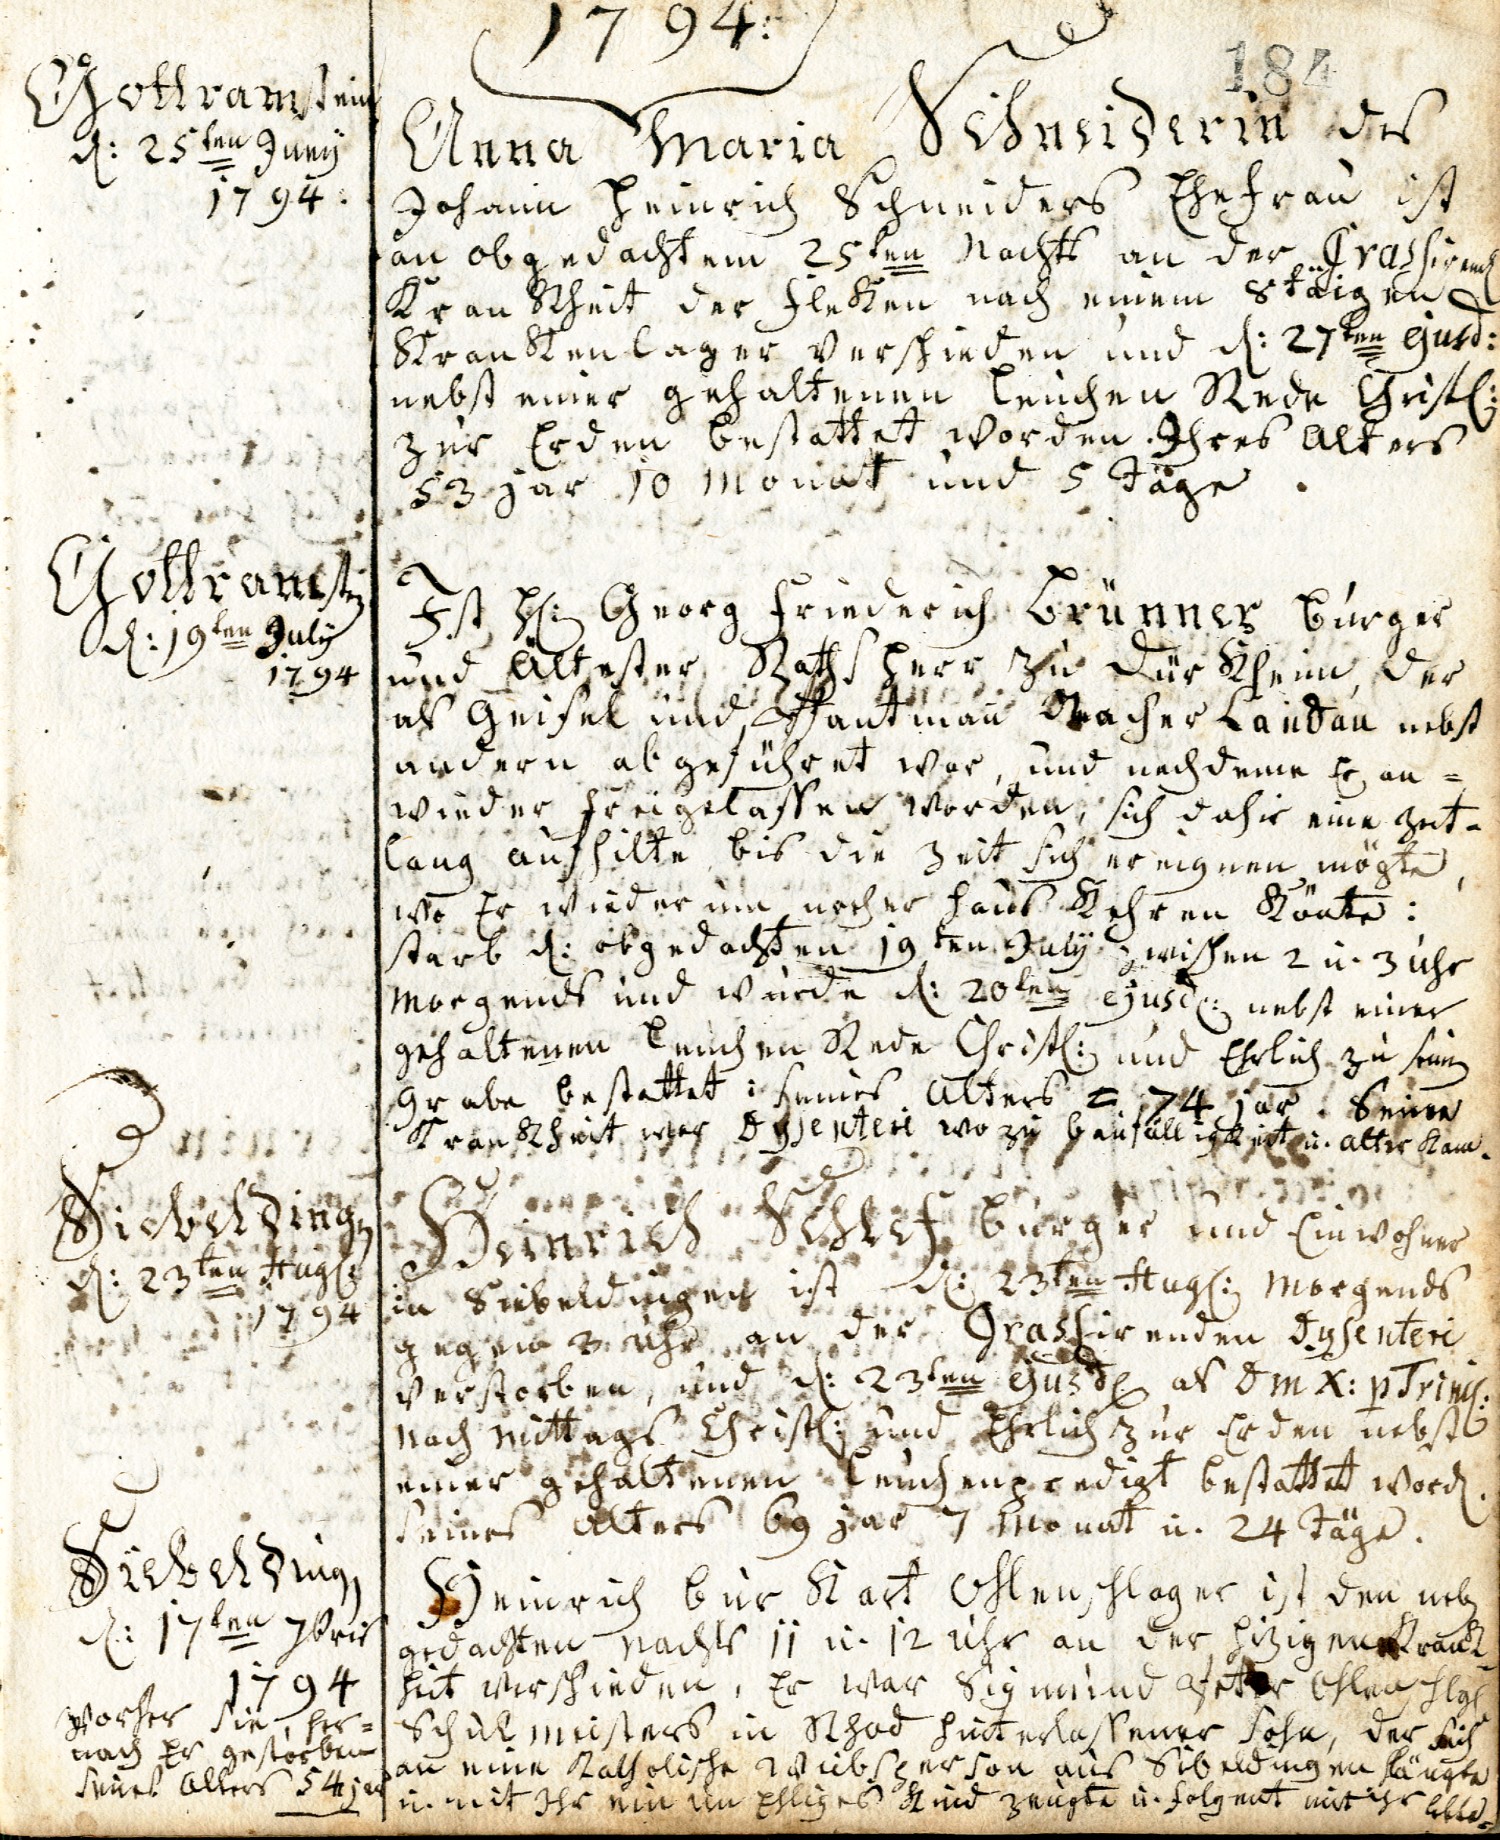 1794:
184
Gottramstein
d: 25ten Juny
1794:
Anna Maria Schneiderin des
Johann Heinrich Schneiders Ehefrau ist
an obgedachtem 25ten Nachts an der Crassirend
Krankheit der Fleken nach einem 8täigen
Krankenlager verschieden und d: 27ten ejusd:
nebst einer gehaltenen Leichen Rede Christl:
zur Erden bestattet worden. Ihres Alters
53 jar 10 Monat und 5 Täge.
Gottramst
d: 19ten July
1794
Ist H: Georg Friederich Brünner burger
und Ältester Rathsherr zu Dürkheim, der
als Geisel und nacher Landau nebst
andern abgeführet war, und nachdeme Er an=
wieder freigelassen worden, sich dahir eine zeit-
lang aufhilte bis die Zeit sich ereignen mögte,
wo Er wiederum nacher haus Kehren Könte:
starb d: obgedachten 19ten July zwischen 2 u. 3 uhr
Morgends und wurde d: 20ten ejusd: nebst einer
gehaltenen Leichen Rede Christl: und Ehrlich zu seim
Grabe bestattet: seines Alters = 74 jar. Seine
Krankheit war Dysenteri wozu baufälligkeit u. alter kam.
Siebelding
d: 23ten Aug:
1794
Heinrich Schlef burger und Einwohner
in Siebeldingen ist d: 23ten Aug: Morgends
gegen 3 Uhr an der Grassirenden Dysenteri
verstorben, und d: 23ten ejusd als D m X: p Trinit:
nach mittags Christl: und Ehrlich zur Erden nebst
einer gehaltenen Leichenpredigt bestattet word.
seines Alters 69 jar 7 Monat u. 24 Täge.
Siebelding
d: 17ten 7bris
1794
vorher sie, her=
nach Er gestorben
seines Alters 54 jar
Heinrich burkart Ohlenschlager ist den neb
gedachten Nachts 11 u. 12 Uhr an der hizigen Krank-
heit verschieden, Er war Sigmund Peter Ohlenschlgl
Schulmeisters in Rhod hinterlassener Sohn, der sich
an eine Katholische Weibsperson aus Sibeldingen hängte
u. mit Ihr ein un ehliges Kind zeugte u. folgent mit ihr lebte